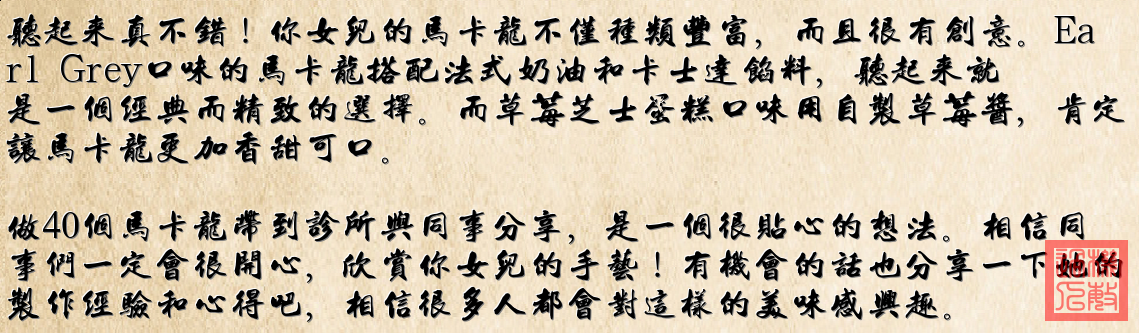 聽起来真不錯！你女兒的馬卡龍不僅種類豐富，而且很有創意。Ea
rl Grey口味的馬卡龍搭配法式奶油和卡士達餡料，聽起来就
是一個經典而精致的選擇。而草莓芝士蛋糕口味用自製草莓醬，肯定
讓馬卡龍更加香甜可口。
做40個馬卡龍帶到診所與同事分享，是一個很貼心的想法。相信同
事們一定會很開心，欣賞你女兒的手藝！有機會的話也分享一下她的
製作經驗和心得吧，相信很多人都會對這樣的美味感興趣。